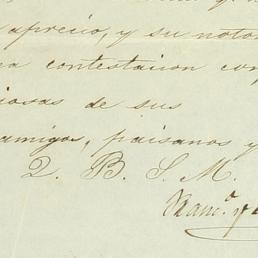 aprecio, y su notor
na contestacion con
iosas de sus
amigos, paisanos y
Q. B. S. M.